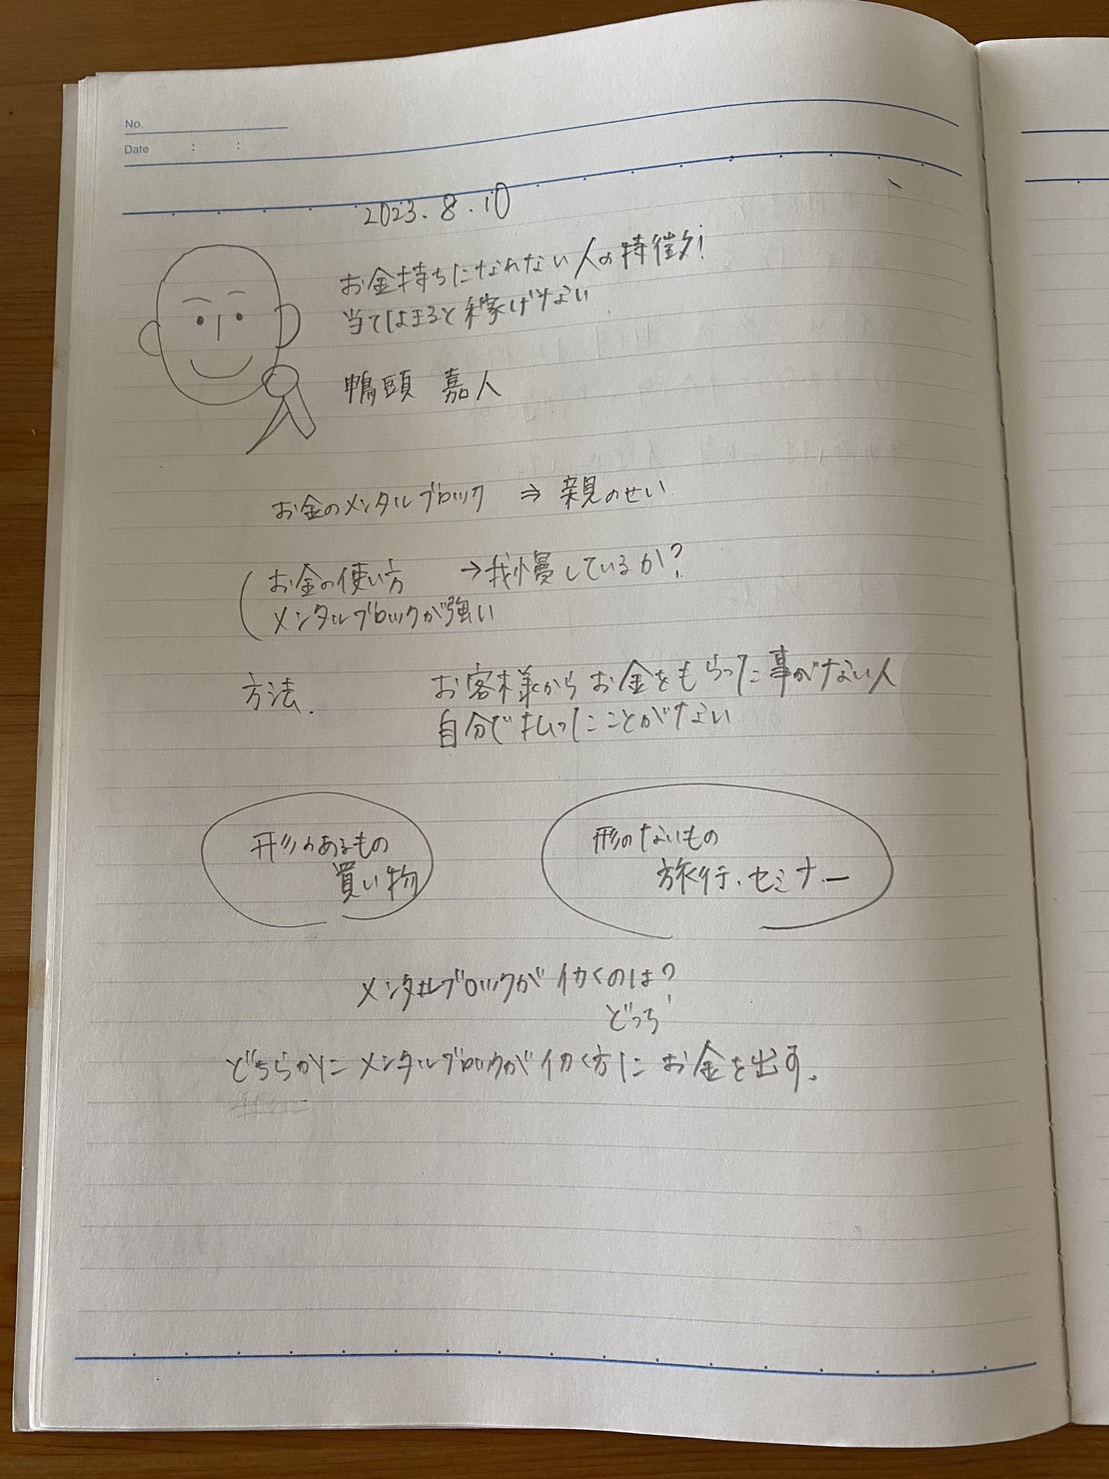 No.
Date : :
2023.8.10
お金持ちになれない人の特徴
当てはまると稼げない
鴨頭 嘉人
お金のメンタルブロック ⇒ 親のせい
お金の使い方 → 我慢しているか?
メンタルブロックが強い
方法. お客様からお金をもらった事がない人
自分で払ったことがない
形のあるもの
買い物
形のないもの
旅行、セミナー
メンタルブロックが働くのは?
どっち
どちらかにメンタルブロックが働く方にお金を出す。